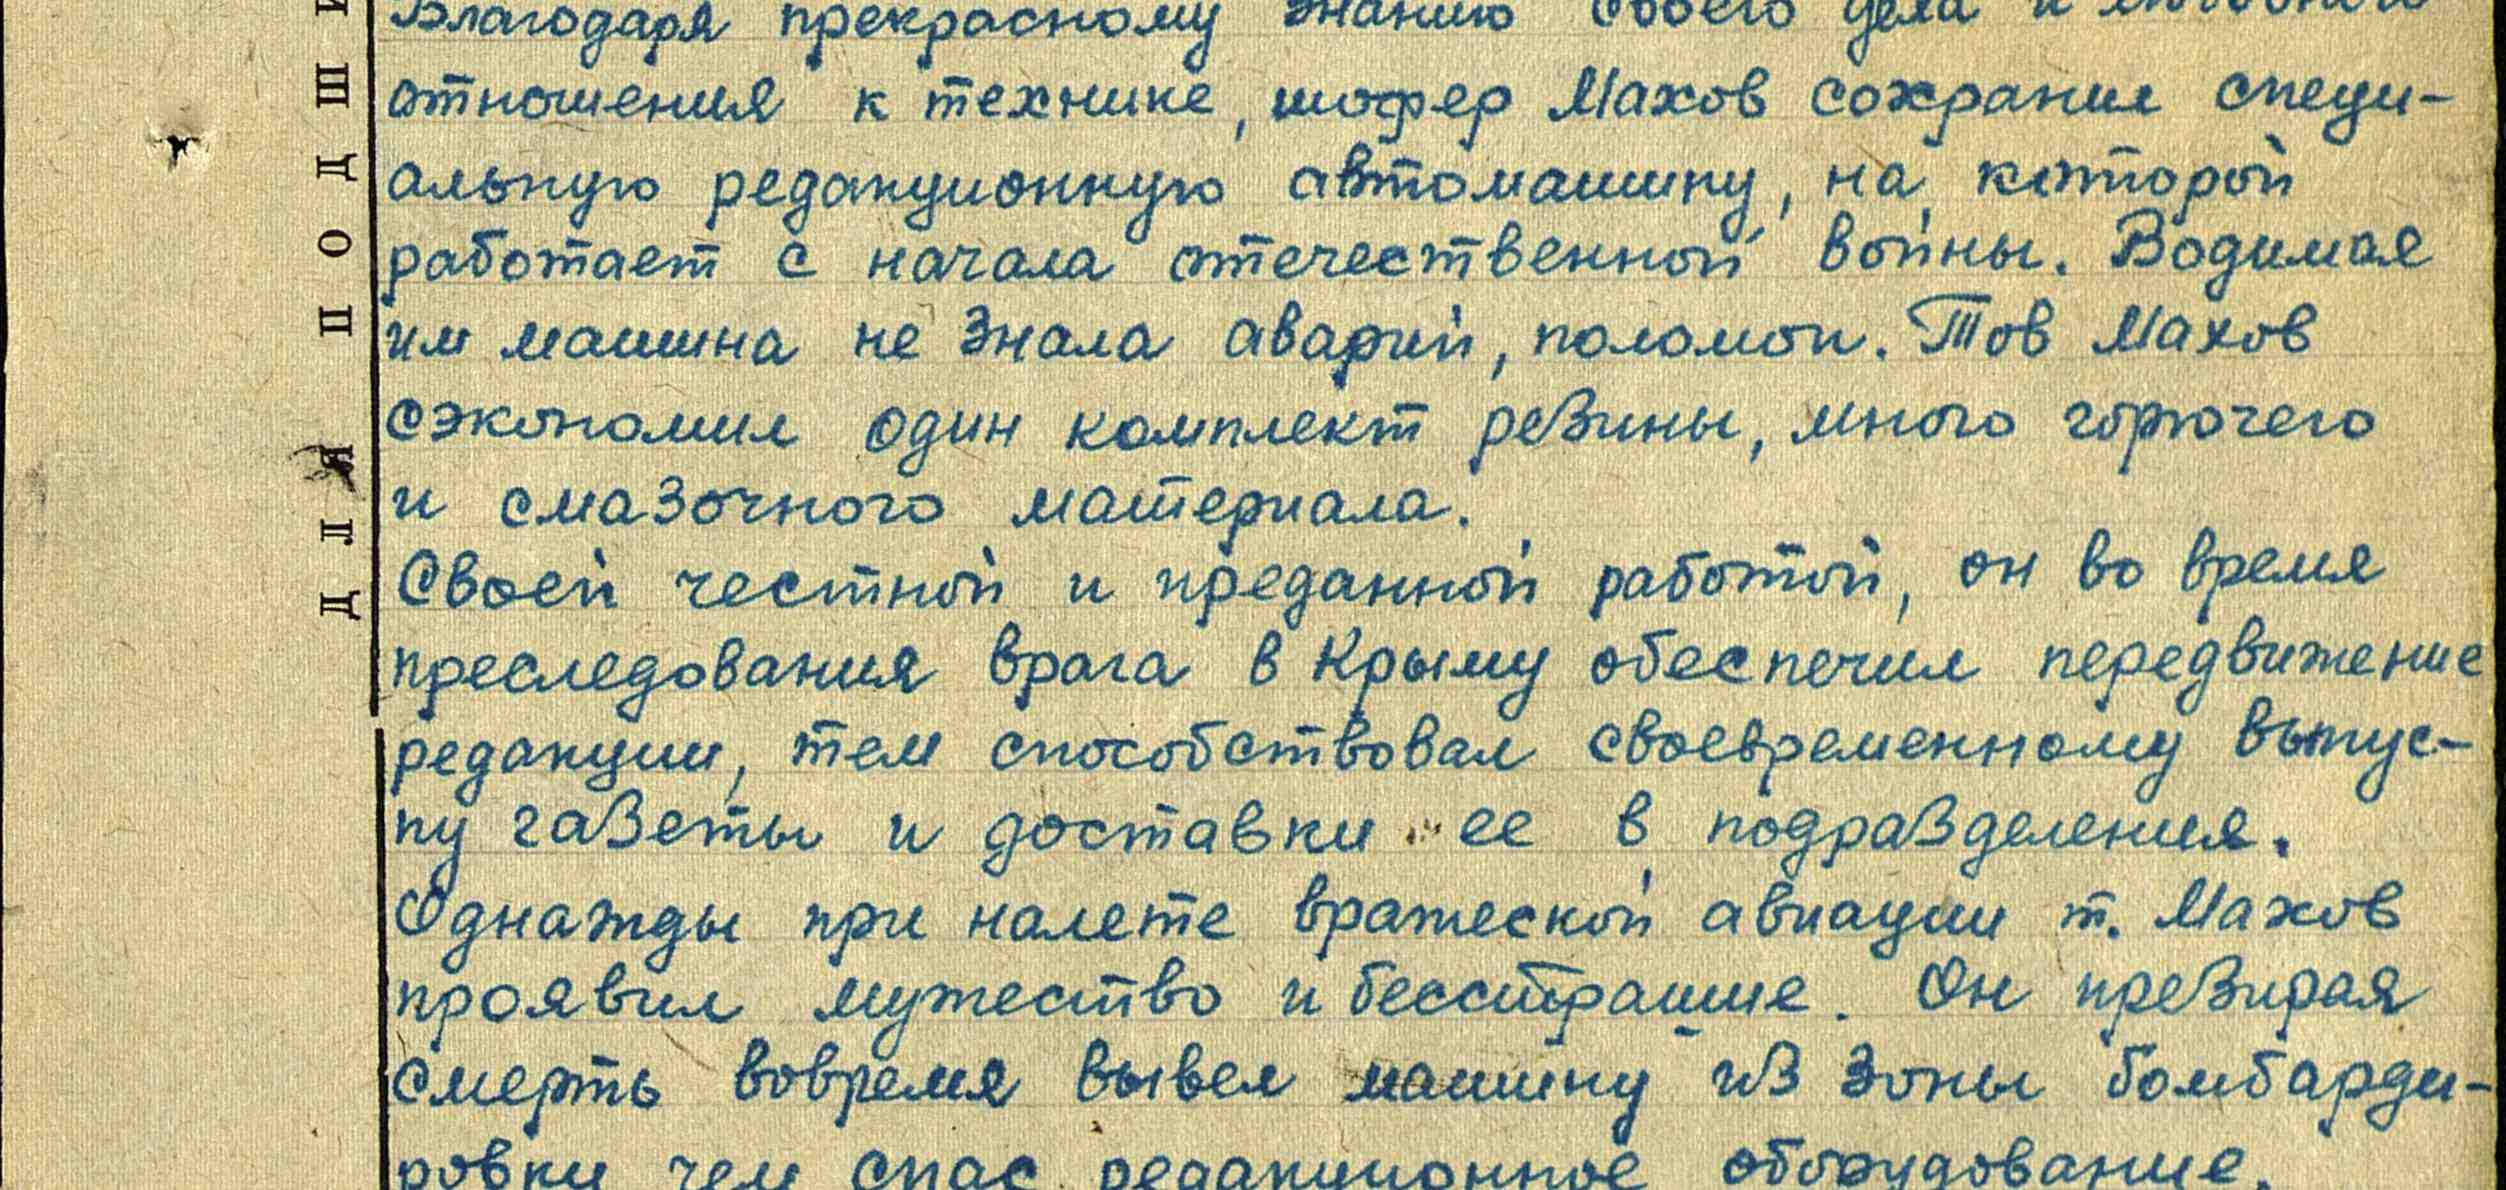 Благодаря прекрасному знанию своего дела и любовного
отношения к технике, шофер Махов сохранил специ-
альную редакционную автомашину, на которой
работает с начала отечественной войны. Водимая
им машина не знала аварий, поломок. Тов Махов
сэкономил один комплект резины, много горючего
и смазочного материала.
Своей честной и преданной работой, он во время
преследования врага в Крыму обеспечил передвижение
редакции, тем способствовал своевременному выпус-
ку газеты и доставки ее в подразделения.
Однажды при налете вражеской авиации т. Махов
проявил мужество и бесстрашие. Он презирая
смерть вовремя вывел машину из зоны бомбарди-
ровки чем спас редакционное оборудование.
ДЛЯ ПОДШИ